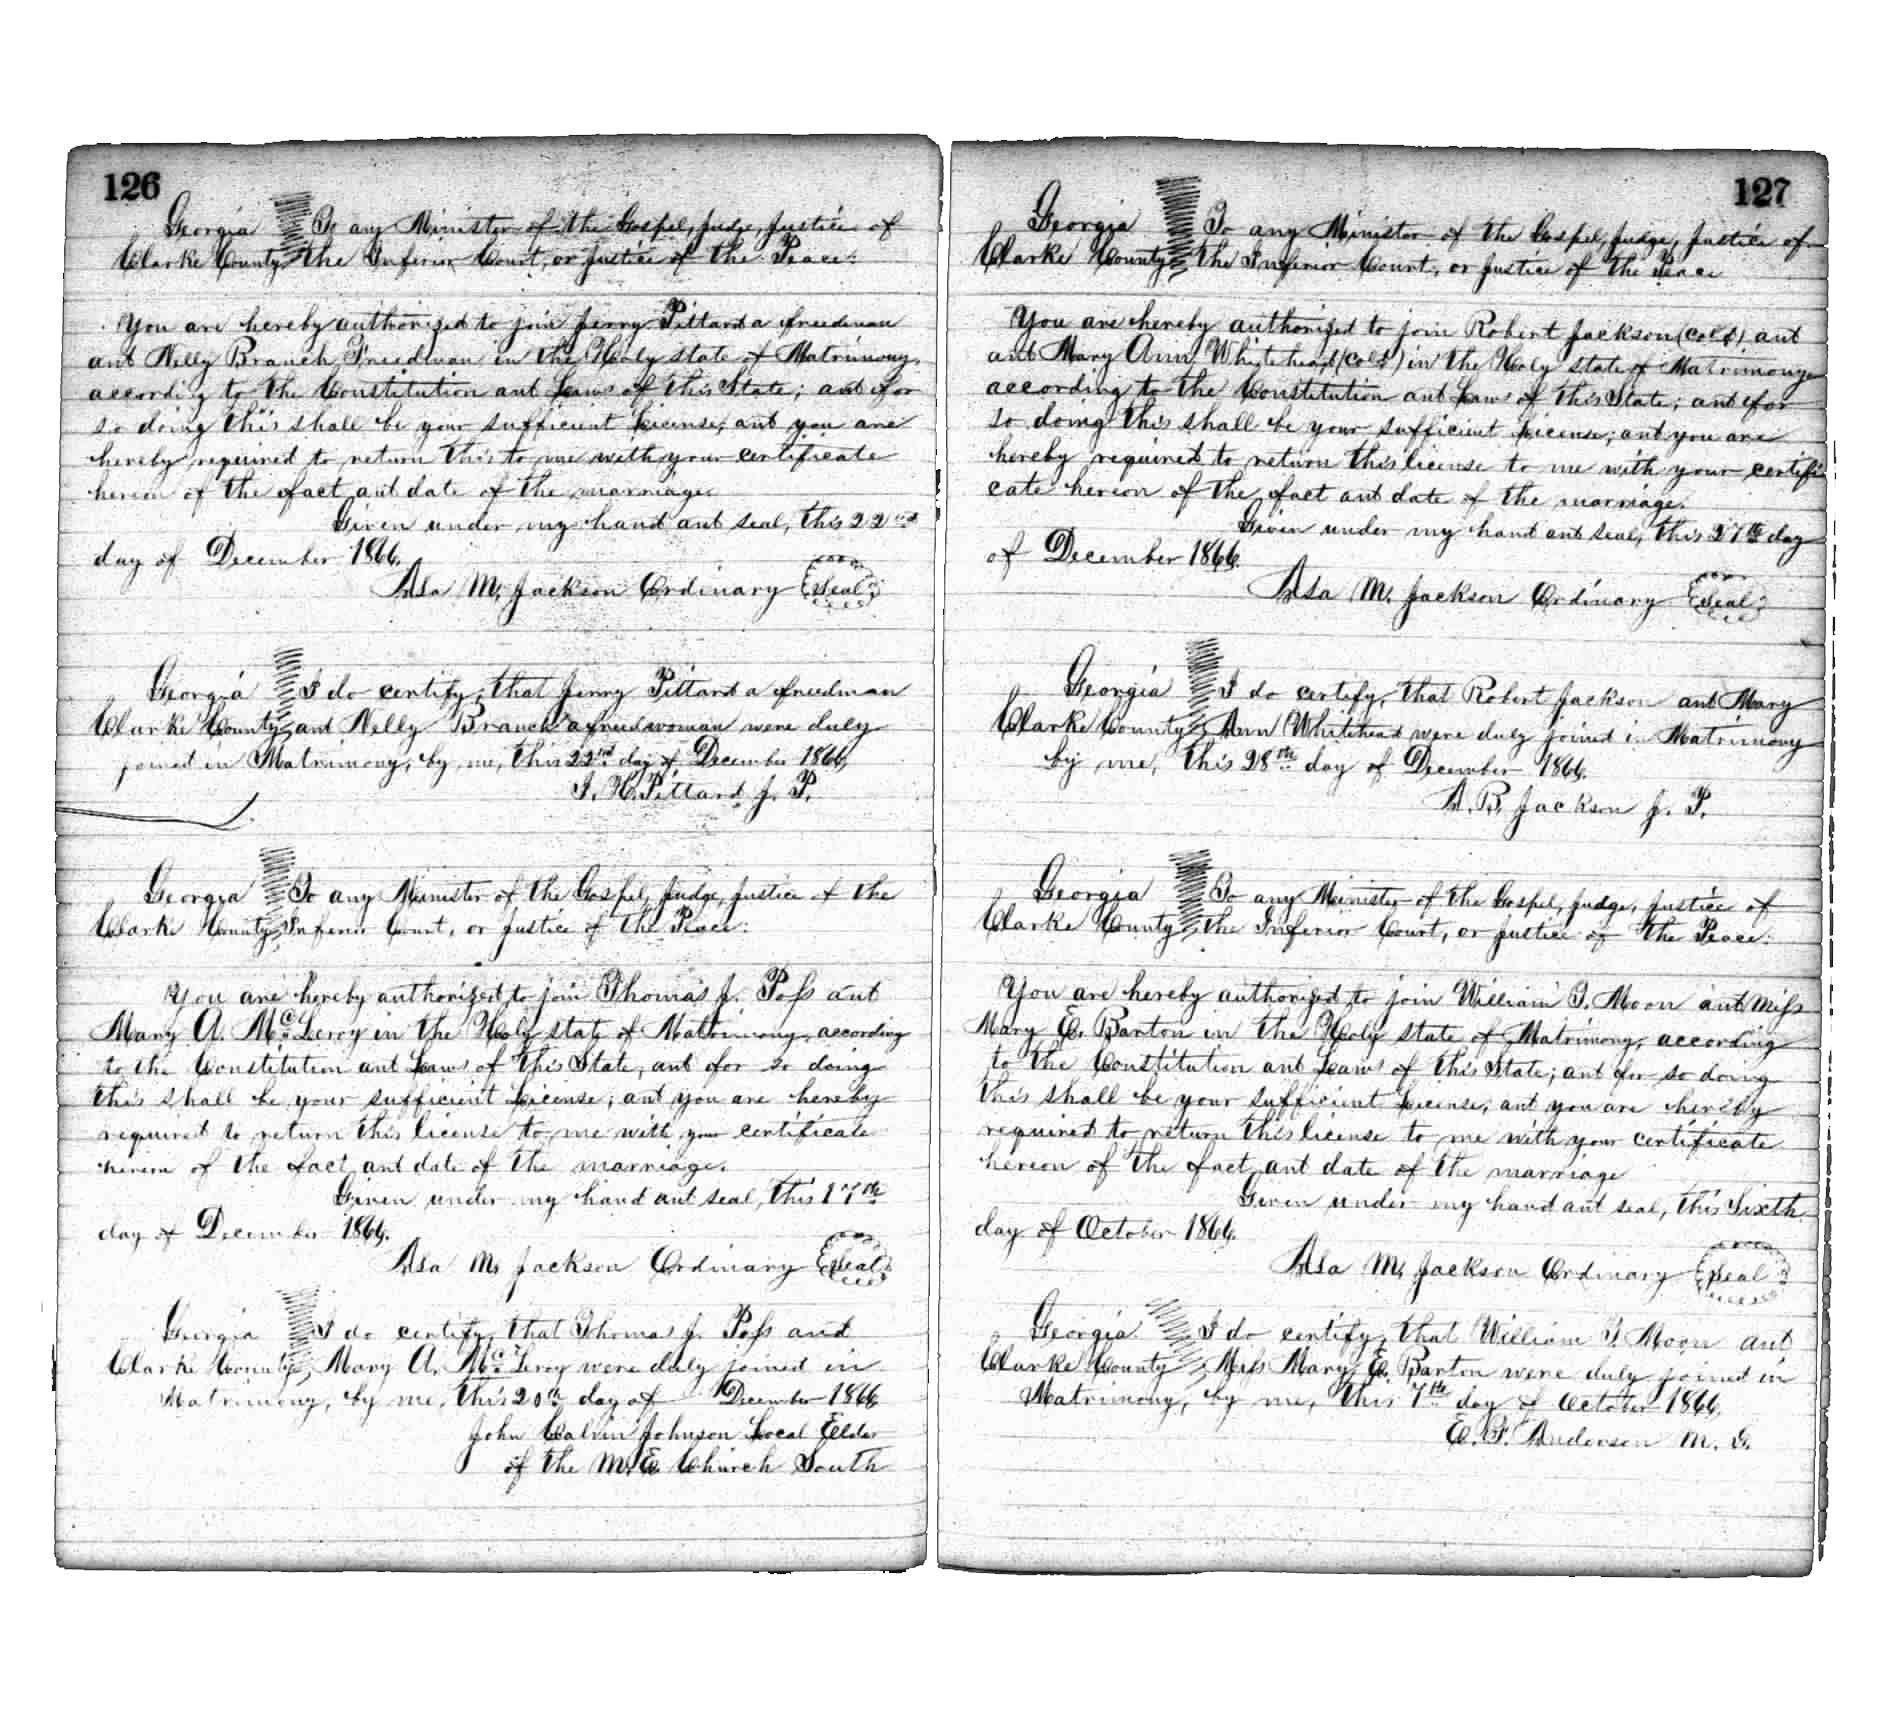 126
Georgia To any Minister of the Gospel, Judge, Justice of
Clarke County the Inferior Court, or Justice of the Peace:
You are hereby authorized to join Jerry Pittard a freedman
and Nelly Branch Freedman in the Holy state of Matrimony,
according to the Constitution and Laws of this State; and for
so doing this shall be your sufficient License; and you are
hereby required to return this to me with your certificate
hereon of the fact and date of the marriage.
Given under my hand and seal, this 22nd
day of December 1866.
Asa M. Jackson Ordinary Seal
Georgia I do certify, that Jerry Pittard a freedman
Clarke County and Nelly Branch a freedwoman were duly
joined in Matrimony, by me, this 22nd day of December 1866,
I. H. Pittard J. P.
Georgia To any Minister of the Gospel, Judge, Justice of the
Clarke County Inferior Court, or Justice of the Peace:
You are hereby authorized to join Thomas J. Poss and
Mary A. McLeroy in the Holy state of Matrimony, according
to the Constitution and Laws of this State, and for so doing
this shall be your sufficient License; and you are hereby
required to return this license to me with your certificate
hereon of the fact and date of the marriage.
Given under my hand and seal, this 17th
day of December 1866.
Asa M. Jackson Ordinary Seal
Georgia I do certify, that Thomas J. Poss and
Clarke County Mary A. McLeroy were duly joined in
Matrimony, by me, this 20th day of December 1866
John Calvin Johnson Local Elder
of the M. E. Church South
127
Georgia To any Minister of the Gospel, Judge, Justice of
Clarke County the Inferior Court, or Justice of the Peace
You are hereby authorized to join Robert Jackson (cold) and
and Mary Ann Whitehead (cold) in the Holy state of Matrimony
according to the Constitution and Laws of this State; and for
so doing this shall be your sufficient License; and you are
hereby required to return this license to me with your certifi
cate hereon of the fact and date of the marriage.
Given under my hand and seal, this 27th day
of December 1866.
Asa M. Jackson Ordinary Seal
Georgia I do certify, that Robert Jackson and Mary
Clarke County Ann Whitehead were duly joined in Matrimony
by me, this 28th day of December 1866.
A. B. Jackson J. P.
Georgia To any Minister of the Gospel, Judge, Justice of
Clarke County the Inferior Court, or Justice of the Peace:
You are hereby authorized to join William I. Moon and Miss
Mary E. Barton in the Holy state of Matrimony, according
to the Constitution and Laws of this State; and for so doing
this shall be your sufficient License; and you are hereby
required to return this license to me with your certificate
hereon of the fact and date of the marriage
Given under my hand and seal, this Sixth
day of October 1866.
Asa M. Jackson Ordinary Seal
Georgia I do certify, that William I. Moon and
Clarke County Miss Mary E. Barton were duly joined in
Matrimony, by me, this 7th day of October 1866,
E. F. Anderson M. G.